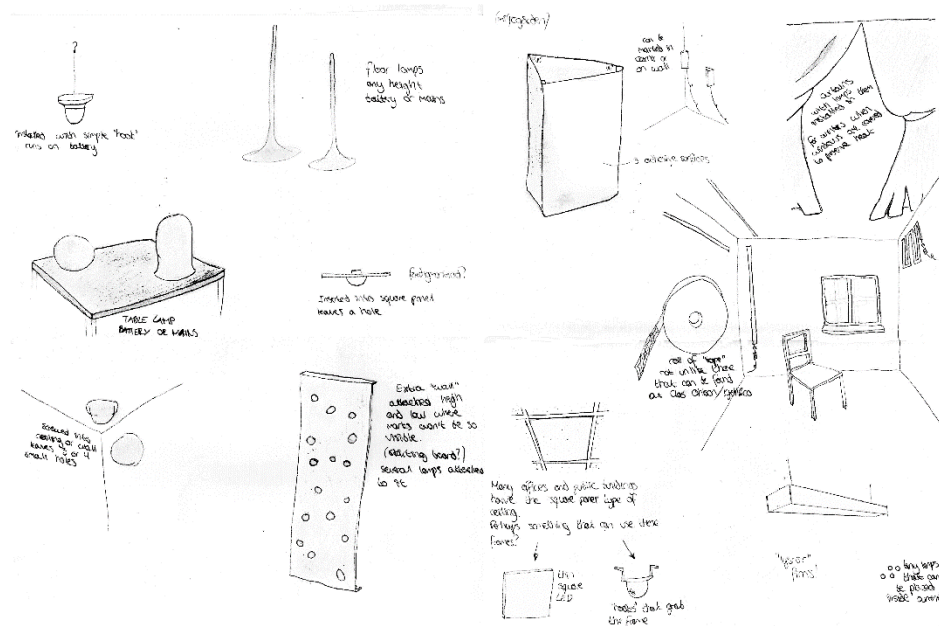 ?
installed with simple "hook"
runs on battery
Floor lamps
any height
battery or mains
TABLE LAMP
BATTERY OR MAINS
Inserted into square panel
leaves a hole
Screwed into
ceiling or wall
leaves
small holes
Extra "wall"
attached high
and low where
marks won't be so
visible.
board?)
several lamps attached
to it
can be
in
corner or
on wall
3 adhesive surfaces
curtains
with lamps
in them
for when
windows are covered
to preserve heat
roll of "tape"
not unlike those
that can be found
at Clas Ohlson
Many offices and public buildings
have the square type of
ceiling.
Perhaps something that can use these
frames?
thin
square
LED
"hooks" that grab
the frame
tiny lamps
that can
be placed
inside